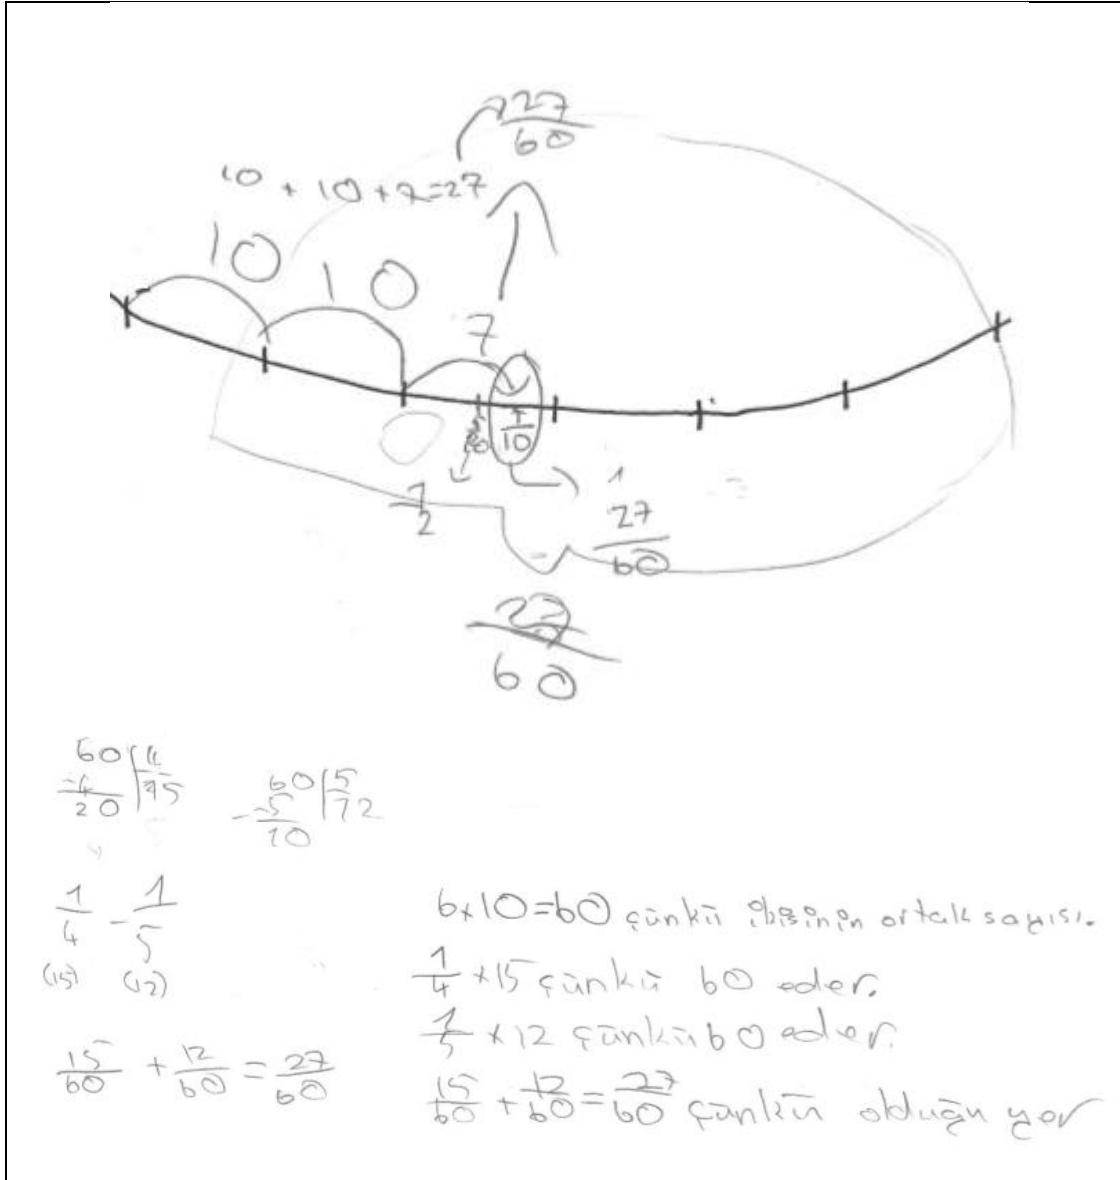 27/60
10 + 10 + 7=27
10 10
7
7/10
1/2
27/60
60
60 4 15
-4
20
60 5 12
-5
10
1/4 - 1/5
(15) (12)
15/60 + 12/60 = 27/60
6x10=60 çünkü ikisinin ortak sayısı.
1/4 x15 çünkü 60 eder.
1/5 x12 çünkü 60 eder.
15/60 + 12/60 = 27/60 çünkü olduğu yer